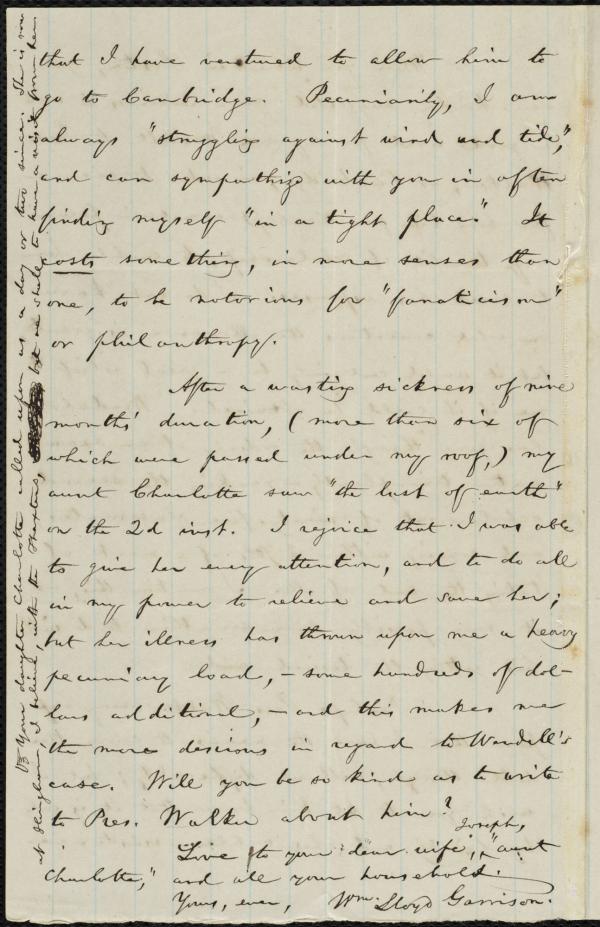 that I have ventured to allow him to
go to Cambridge. Pecuniarily, I am
always "struggling against wind and tide,"
and can sympathize with you in often
finding myself "in a tight place." It
costs something, in more senses than
one, to be notorious for "fanaticism"
or philanthropy.
After a wasting sickness of nine
months' duration, (more than six of
which were passed under my roof,) my
aunt Charlotte saw "the last of earth"
on the 2d inst. I rejoice that I was able
to give her every attention, and to do all
in my power to relieve and save her;
but her illness has thrown upon me a heavy
pecuniary load, - some hundreds of dol-
lars additional, - and this makes me
the more desirous in regard to Wendell's
case. Will you be so kind as to write
to Pres. Walker about him?
Love to your dear wife, Joseph, "aunt
Charlotte," and all your household.
Yours, ever, Wm. Lloyd Garrison.
Your daughter Charlotte called upon us a day or two since. She is now
at Hingham, I believe, with the Thaxters, but we while to have a visit from her